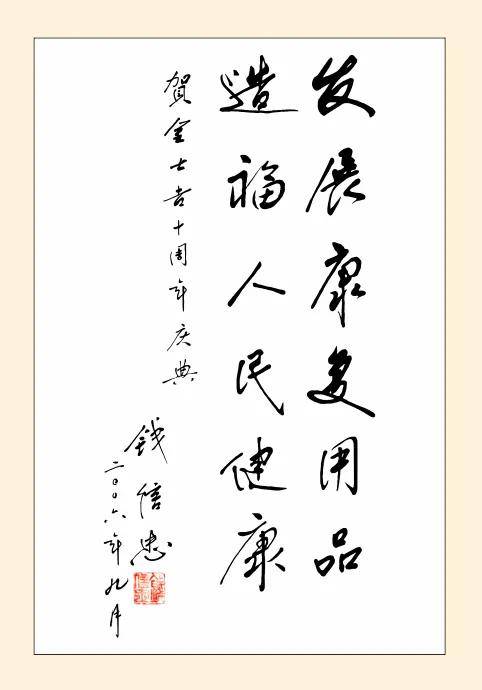 发展康复用品
造福人民健康
贺金士吉十周年庆典
钱信忠
二〇〇六年九月